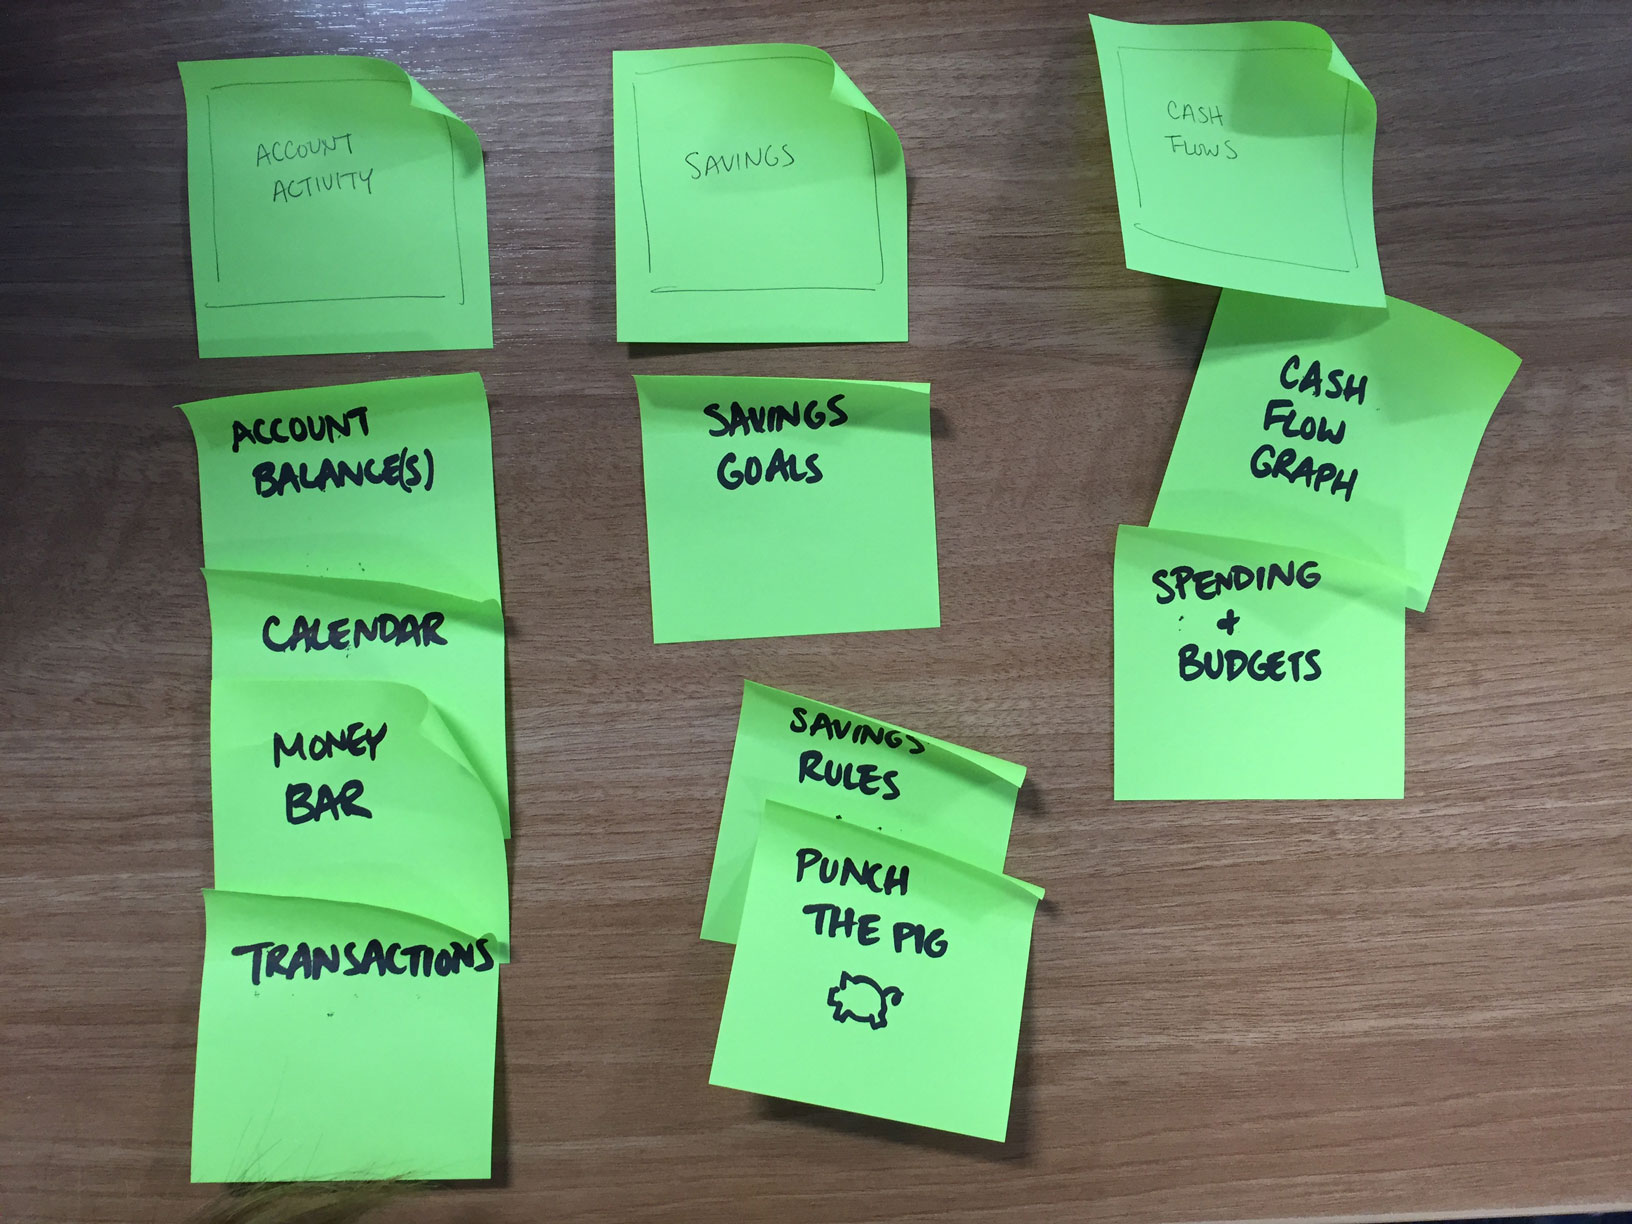 ACCOUNT
ACTIVITY
ACCOUNT
BALANCE(S)
CALENDAR
MONEY
BAR
TRANSACTIONS
SAVINGS
SAVINGS
GOALS
SAVINGS
RULES
PUNCH
THE PIG
CASH
FLOWS
CASH
FLOW
GRAPH
SPENDING
+
BUDGETS